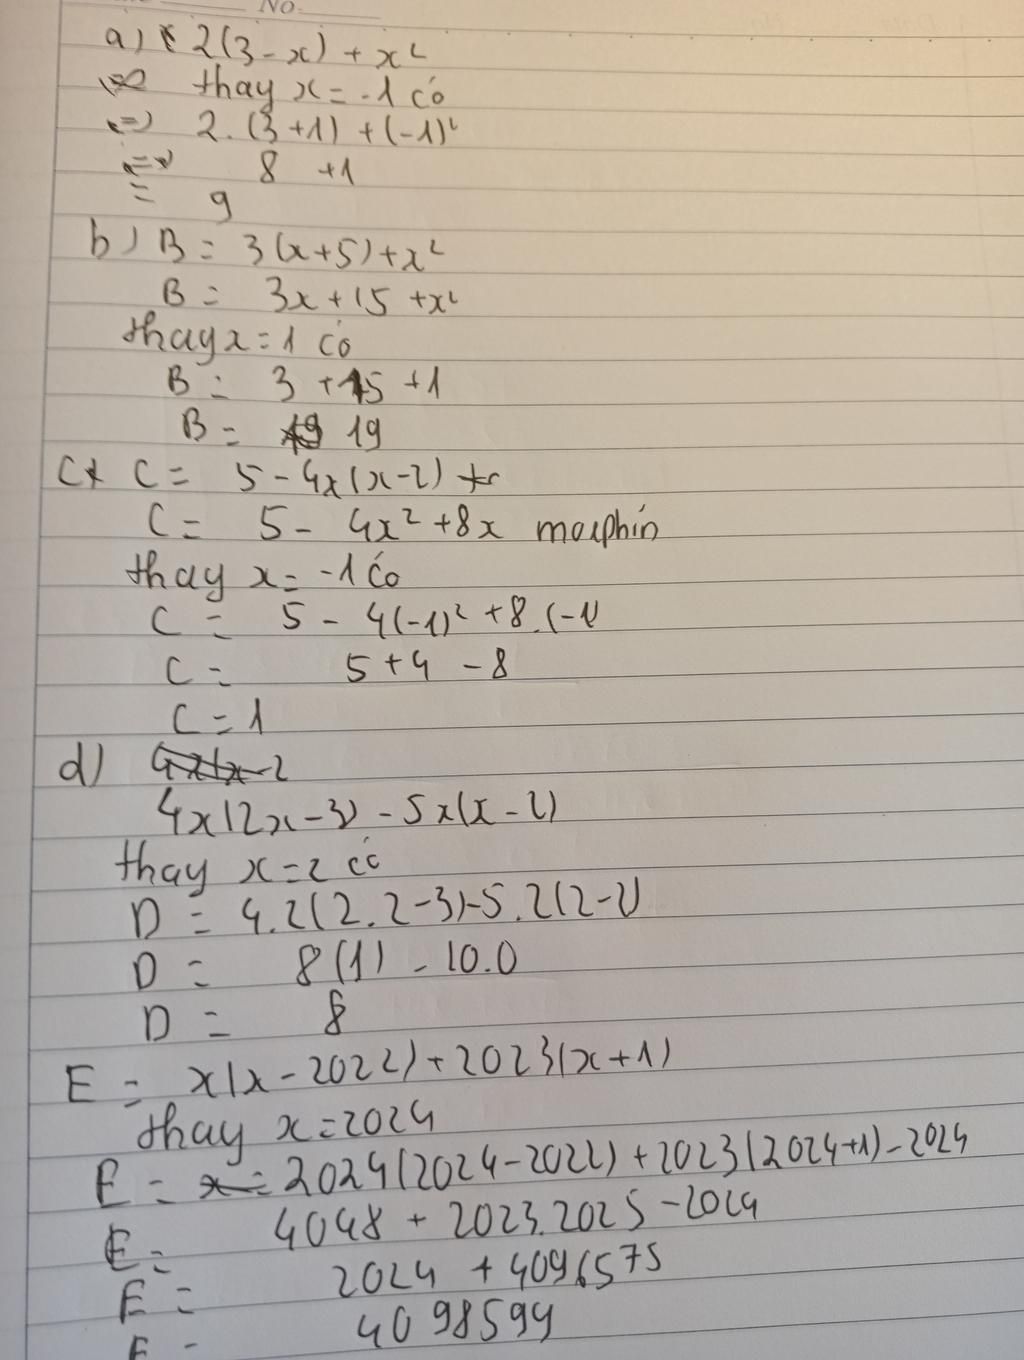 No.
a) 2(3-x) + x²
thay x = -1 có
=> 2.(3+1) + (-1)²
=> 8 +1
= 9
b) B = 3(x+5)+x²
B = 3x+15 +x²
thay x = 1 có
B = 3 + 15 +1
B = 19
C = 5 - 4x(x-2)
C = 5 - 4x² +8x
thay x = -1 có
C = 5 - 4(-1)² +8.(-1)
C = 5+4 -8
C = 1
d)
4x(2x-3) - 5x(x-2)
thay x = 2 có
D = 4.2(2.2-3)-5.2(2-2)
D = 8(1) - 10.0
D = 8
E = x(x-2022)+2023(x+1)
thay x = 2024
E = 2024(2024-2022) + 2023(2024+1) - 2024
E = 4048 + 2023.2025 - 2024
E = 2024 + 4096575
E = 4098599